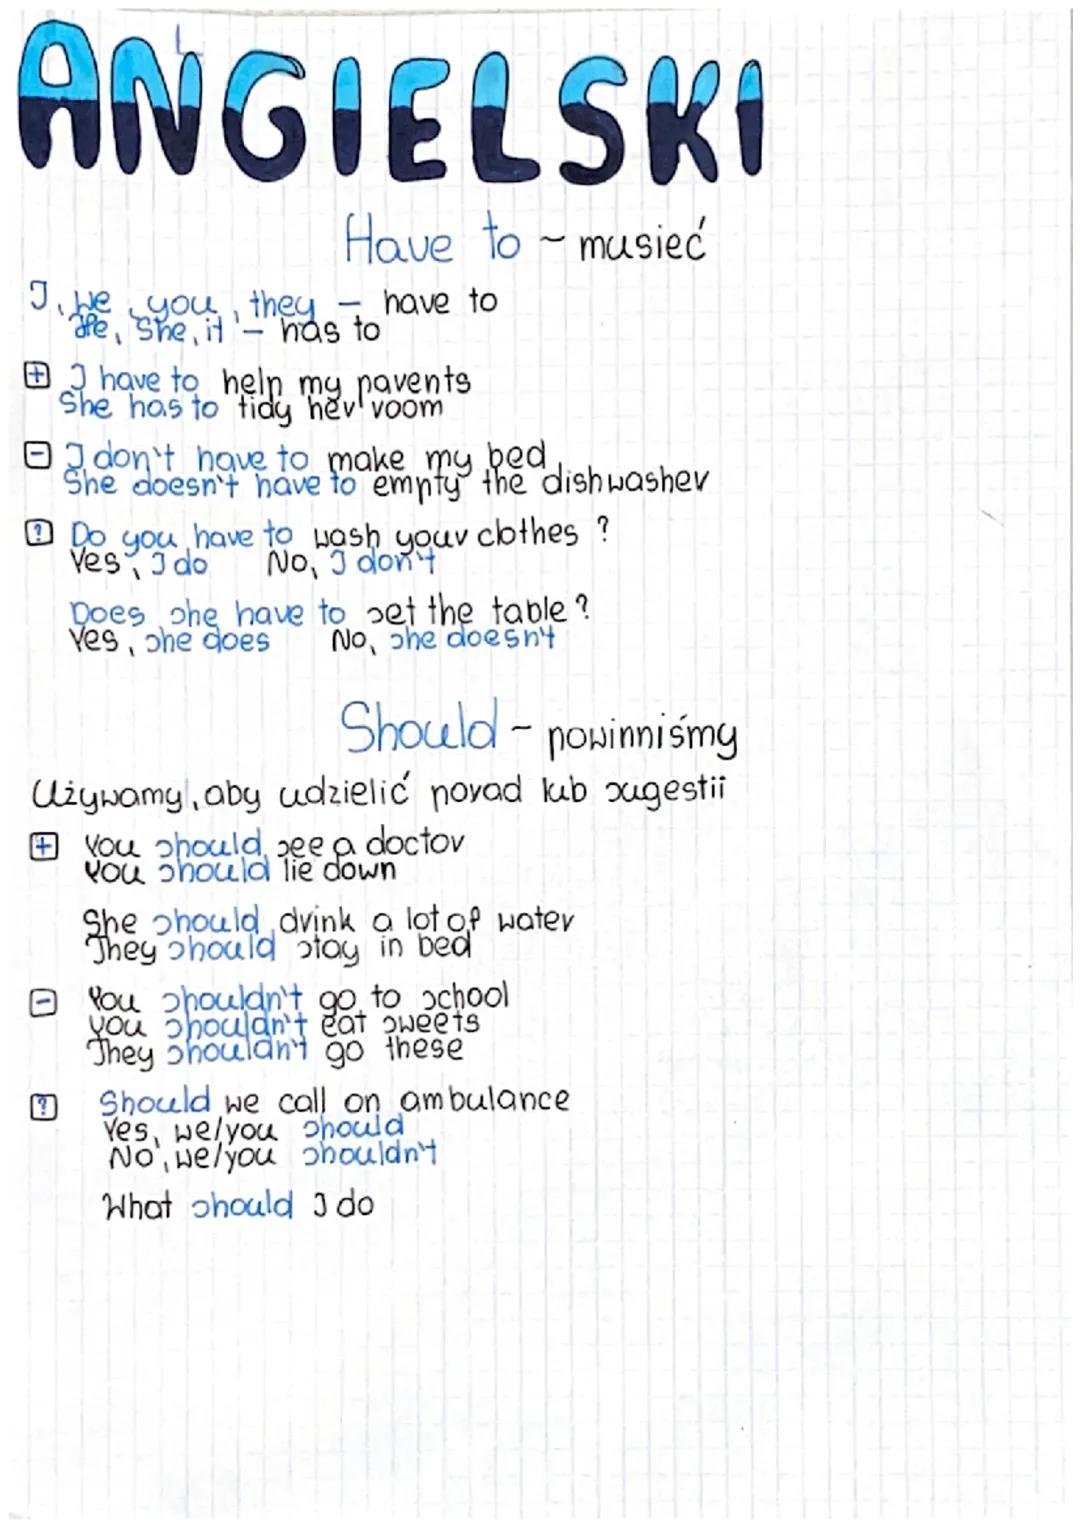 ANGIELSKI
Have to ~ musieć
I, we, you, they - have to
He, She, it - has to
+ I have to help my parents
She has to tidy her room
- I don't have to make my bed
She doesn't have to empty the dishwasher
? Do you have to wash your clothes ?
Yes, I do No, I don't
Does she have to set the table ?
Yes, she does No, she doesn't
Should - powinniśmy
Używamy, aby udzielić porad lub sugestii
+ You should see a doctor
You should lie down
She should drink a lot of water
They should stay in bed
- You shouldn't go to school
You shouldn't eat sweets
They shouldn't go these
? Should we call on ambulance
Yes, we/you should
No, we/you shouldn't
What should I do